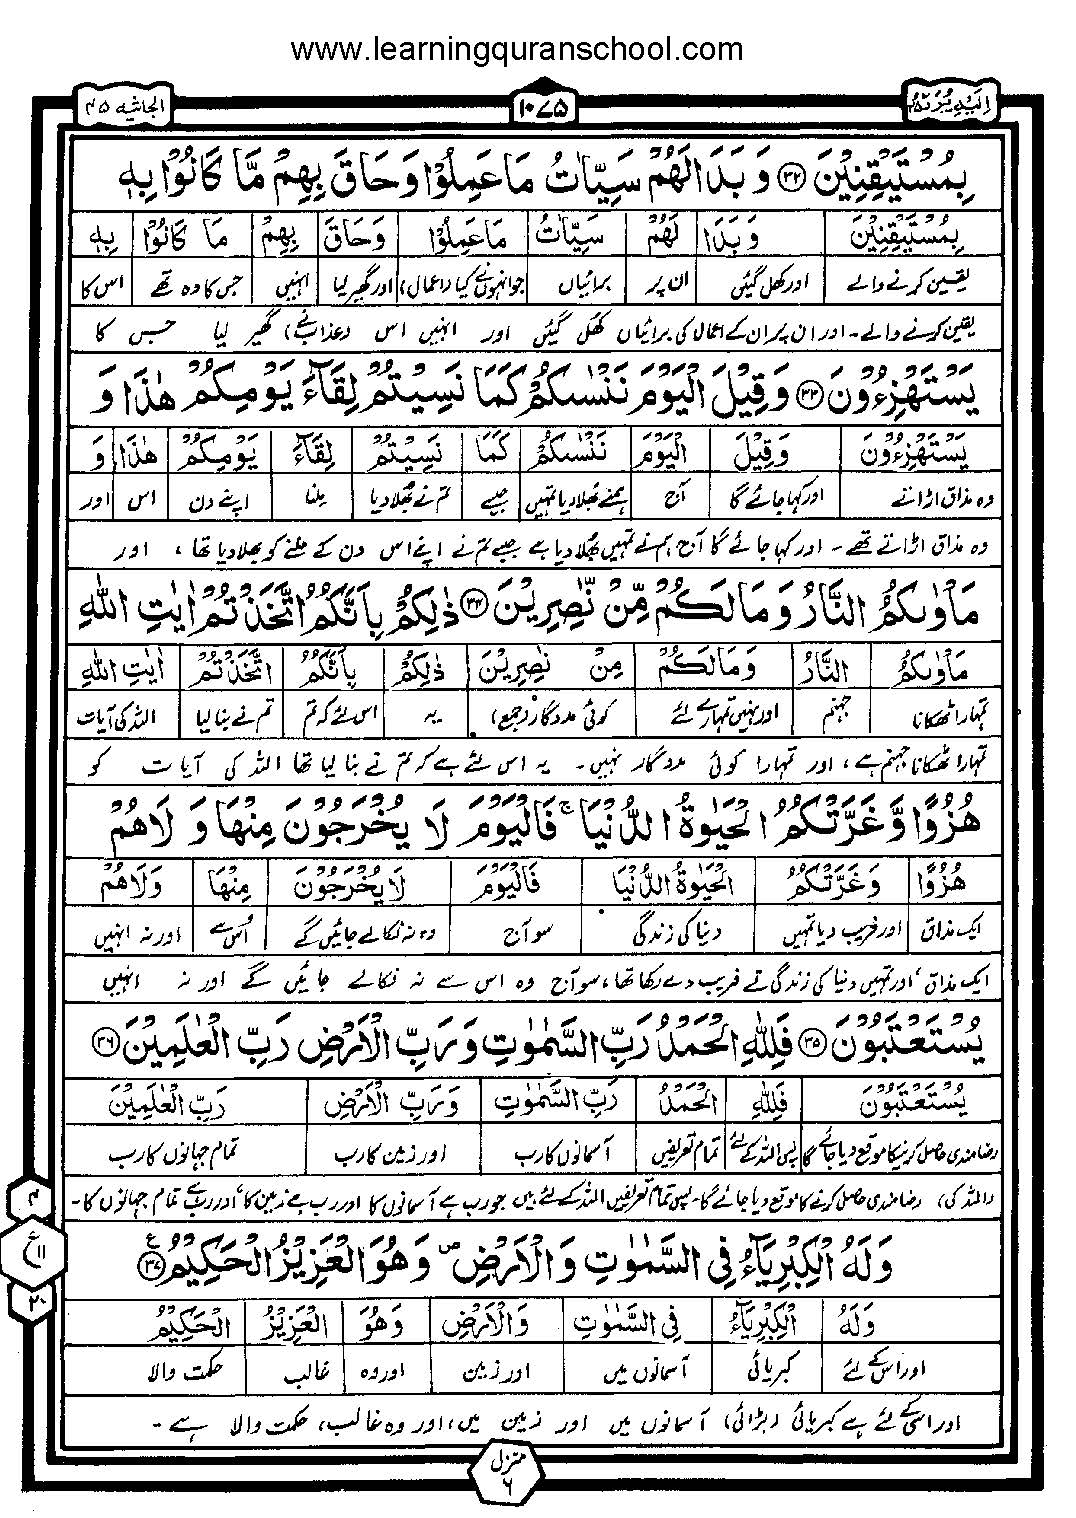 www.learningquranschool.com
اِلَيْهِ يُرَدُّ ۲۵
۱۰۷۵
الجاثيه ۴۵
بِمُسْتَيْقِنِيْنَ ۝۳۲ وَ بَدَا لَهُمْ سَيِّاٰتُ مَا عَمِلُوْا وَ حَاقَ بِهِمْ مَّا كَانُوْا بِهٖ
بِمُسْتَيْقِنِيْنَ وَ بَدَا لَهُمْ سَيِّاٰتُ مَا عَمِلُوْا وَ حَاقَ بِهِمْ مَا كَانُوْا بِهٖ
یقین کرنے والے اور کھل گئیں ان پر برائیاں جو انہوں نے کیا (اعمال) اور گھیر لیا انہیں جس کا وہ تھے اس کا
یقین کرنے والے۔ اور ان پر ان کے اعمال کی برائیاں کھل گئیں اور انہیں اس (عذاب نے) گھیر لیا جس کا
يَسْتَهْزِءُوْنَ ۝۳۳ وَ قِيْلَ الْيَوْمَ نَنْسٰىكُمْ كَمَا نَسِيْتُمْ لِقَآءَ يَوْمِكُمْ هٰذَا وَ
يَسْتَهْزِءُوْنَ وَ قِيْلَ الْيَوْمَ نَنْسٰىكُمْ كَمَا نَسِيْتُمْ لِقَآءَ يَوْمِكُمْ هٰذَا وَ
وہ مذاق اڑاتے اور کہا جائے گا آج ہم نے بھلا دیا تمہیں جیسے تم نے بھلا دیا ملنا اپنے دن اس اور
وہ مذاق اڑاتے تھے۔ اور کہا جائے گا آج ہم نے تمہیں بھلا دیا ہے جیسے تم نے اپنے اس دن کے ملنے کو بھلا دیا تھا، اور
مَاْوٰىكُمُ النَّارُ وَ مَا لَكُمْ مِّنْ نّٰصِرِيْنَ ۝۳۴ ذٰلِكُمْ بِاَنَّكُمُ اتَّخَذْتُمْ اٰيٰتِ اللّٰهِ
مَاْوٰىكُمُ النَّارُ وَ مَا لَكُمْ مِنْ نٰصِرِيْنَ ذٰلِكُمْ بِاَنَّكُمُ اتَّخَذْتُمْ اٰيٰتِ اللّٰهِ
تمہارا ٹھکانا جہنم اور نہیں تمہارے لئے کوئی مددگار (جمع) یہ اس لئے کہ تم تم نے بنا لیا اللہ کی آیات
تمہارا ٹھکانا جہنم ہے، اور تمہارا کوئی مددگار نہیں۔ یہ اس لئے ہے کہ تم نے بنا لیا تھا اللہ کی آیات کو
هُزُوًا وَّ غَرَّتْكُمُ الْحَيٰوةُ الدُّنْيَا ۚ فَالْيَوْمَ لَا يُخْرَجُوْنَ مِنْهَا وَ لَا هُمْ
هُزُوًا وَ غَرَّتْكُمُ الْحَيٰوةُ الدُّنْيَا فَالْيَوْمَ لَا يُخْرَجُوْنَ مِنْهَا وَلَا هُمْ
ایک مذاق اور فریب دیا تمہیں دنیا کی زندگی سو آج وہ نہ نکالے جائیں گے اُس سے اور نہ انہیں
ایک مذاق، اور تمہیں دنیا کی زندگی نے فریب دے رکھا تھا، سو آج وہ اس سے نہ نکالے جائیں گے اور نہ انہیں
يُسْتَعْتَبُوْنَ ۝۳۵ فَلِلّٰهِ الْحَمْدُ رَبِّ السَّمٰوٰتِ وَ رَبِّ الْاَرْضِ رَبِّ الْعٰلَمِيْنَ ۝۳۶
يُسْتَعْتَبُوْنَ فَلِلّٰهِ الْحَمْدُ رَبِّ السَّمٰوٰتِ وَ رَبِّ الْاَرْضِ رَبِّ الْعٰلَمِيْنَ
رضامندی حاصل کرنے کا موقع دیا جائے گا پس اللہ کے لئے تمام تعریفیں آسمانوں کا رب اور زمین کا رب تمام جہانوں کا رب
(اللہ کی) رضامندی حاصل کرنے کا موقع دیا جائے گا۔ پس تمام تعریفیں اللہ کے لئے ہیں جو رب ہے آسمانوں کا اور رب ہے زمین کا، اور رب ہے تمام جہانوں کا۔
وَ لَهُ الْكِبْرِيَآءُ فِي السَّمٰوٰتِ وَ الْاَرْضِ ۪ وَ هُوَ الْعَزِيْزُ الْحَكِيْمُ ۝۳۷ ع
وَ لَهُ الْكِبْرِيَآءُ فِي السَّمٰوٰتِ وَ الْاَرْضِ وَ هُوَ الْعَزِيْزُ الْحَكِيْمُ
اور اس کے لئے کبریائی آسمانوں میں اور زمین اور وہ غالب حکمت والا
اور اسی کے لئے ہے کبریائی (بڑائی) آسمانوں میں اور زمین میں، اور وہ غالب، حکمت والا ہے۔
۴
ع ۱۱
۲۰
منزل
۶